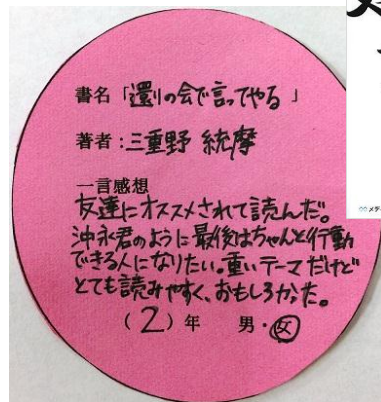 書名「還りの会で言ってやる」
著者:三重野 統摩
一言感想
友達にオススメされて読んだ。
沖永君のように最後はちゃんと行動
できる人になりたい。重いテーマだけど
とても読みやすく、おもしろかった。
(2)年 男・女